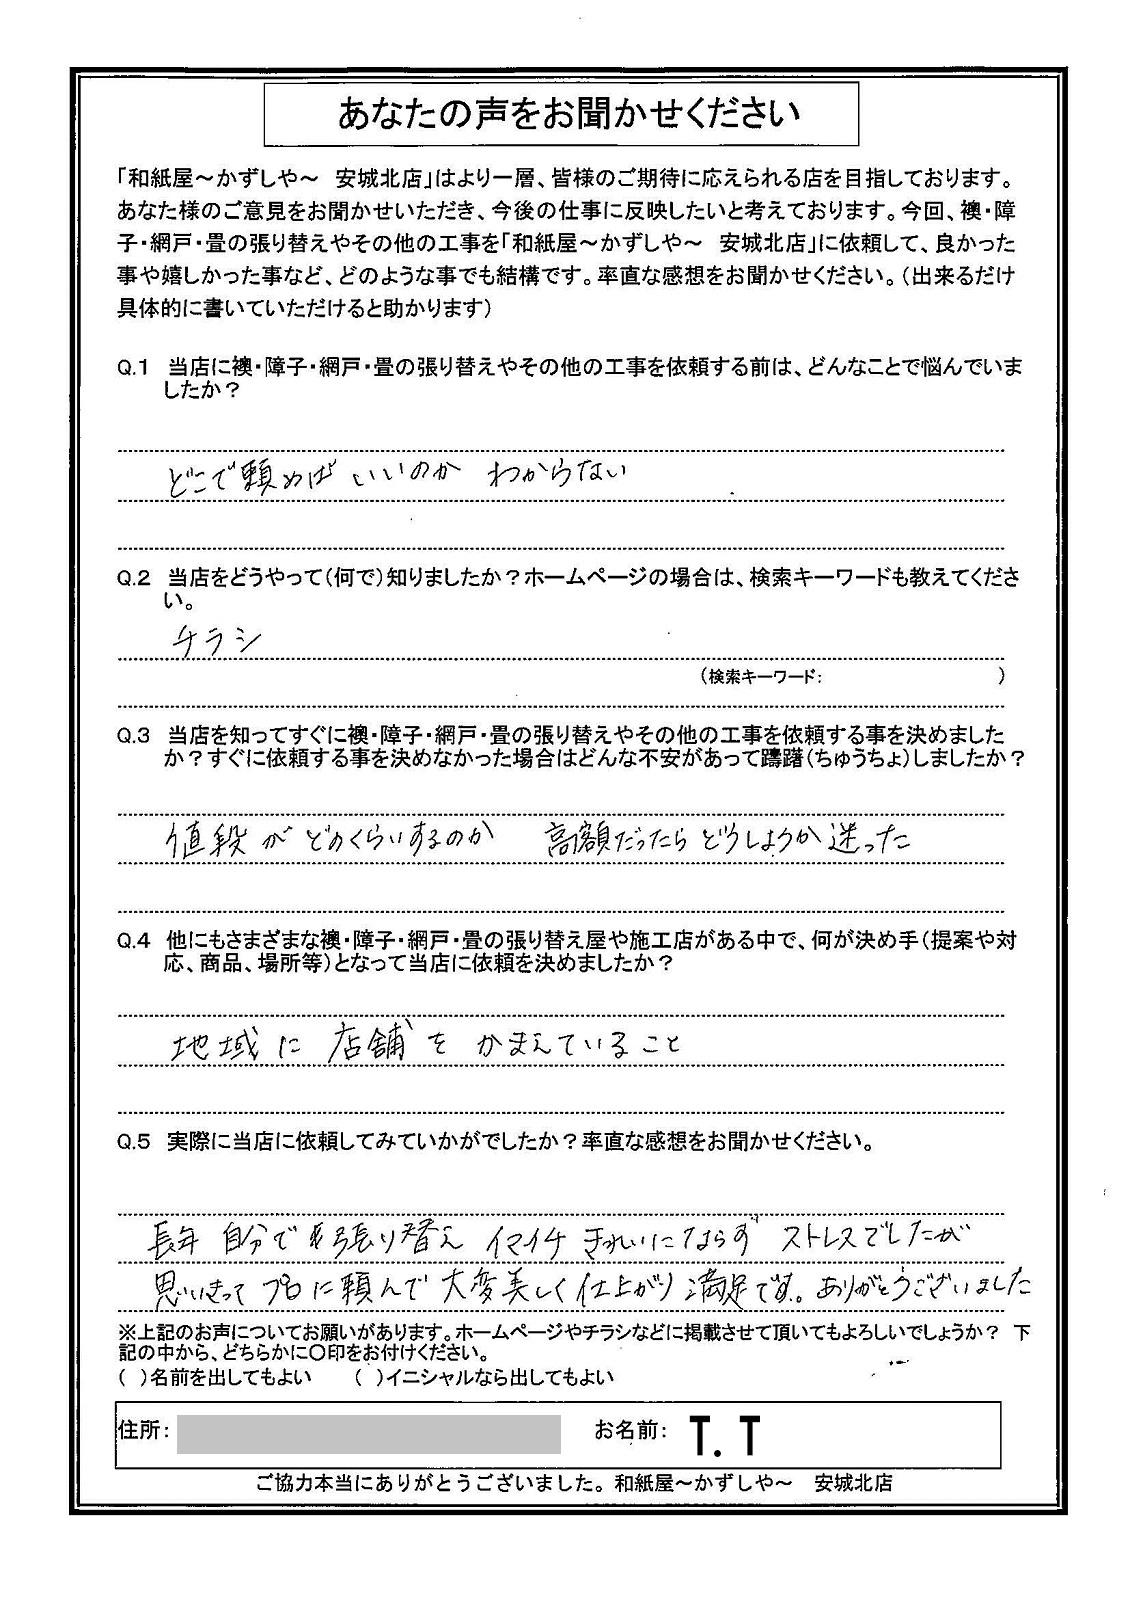 あなたの声をお聞かせください
「和紙屋～かずしや～　安城北店」はより一層、皆様のご期待に応えられる店を目指しております。
あなた様のご意見をお聞かせいただき、今後の仕事に反映したいと考えております。今回、襖・障
子・網戸・畳の張り替えやその他の工事を「和紙屋～かずしや～　安城北店」に依頼して、良かった
事や嬉しかった事など、どのような事でも結構です。率直な感想をお聞かせください。（出来るだけ
具体的に書いていただけると助かります）
Q.1　当店に襖・障子・網戸・畳の張り替えやその他の工事を依頼する前は、どんなことで悩んでいま
したか？
どこで頼めば いいのか わからない
Q.2　当店をどうやって（何で）知りましたか？ホームページの場合は、検索キーワードも教えてくださ
い。
チラシ
（検索キーワード：　　　　　　　　　　）
Q.3　当店を知ってすぐに襖・障子・網戸・畳の張り替えやその他の工事を依頼する事を決めました
か？すぐに依頼する事を決めなかった場合はどんな不安があって躊躇（ちゅうちょ）しましたか？
値段が どのくらいするのか　高額だったら どうしようか 迷った
Q.4　他にもさまざまな襖・障子・網戸・畳の張り替え屋や施工店がある中で、何が決め手（提案や対
応、商品、場所等）となって当店に依頼を決めましたか？
地域に 店舗を かまえていること
Q.5　実際に当店に依頼してみていかがでしたか？率直な感想をお聞かせください。
長年 自分で 張り替え イマイチ きれいにならず ストレスでしたが
思いきって プロに頼んで 大変美しく 仕上がり 満足です。ありがとうございました
※上記のお声についてお願いがあります。ホームページやチラシなどに掲載させて頂いてもよろしいでしょうか？　下
記の中から、どちらかに〇印をお付けください。
（ ）名前を出してもよい　　（ ）イニシャルなら出してもよい
住所：　お名前： T.T
ご協力本当にありがとうございました。和紙屋～かずしや～　安城北店